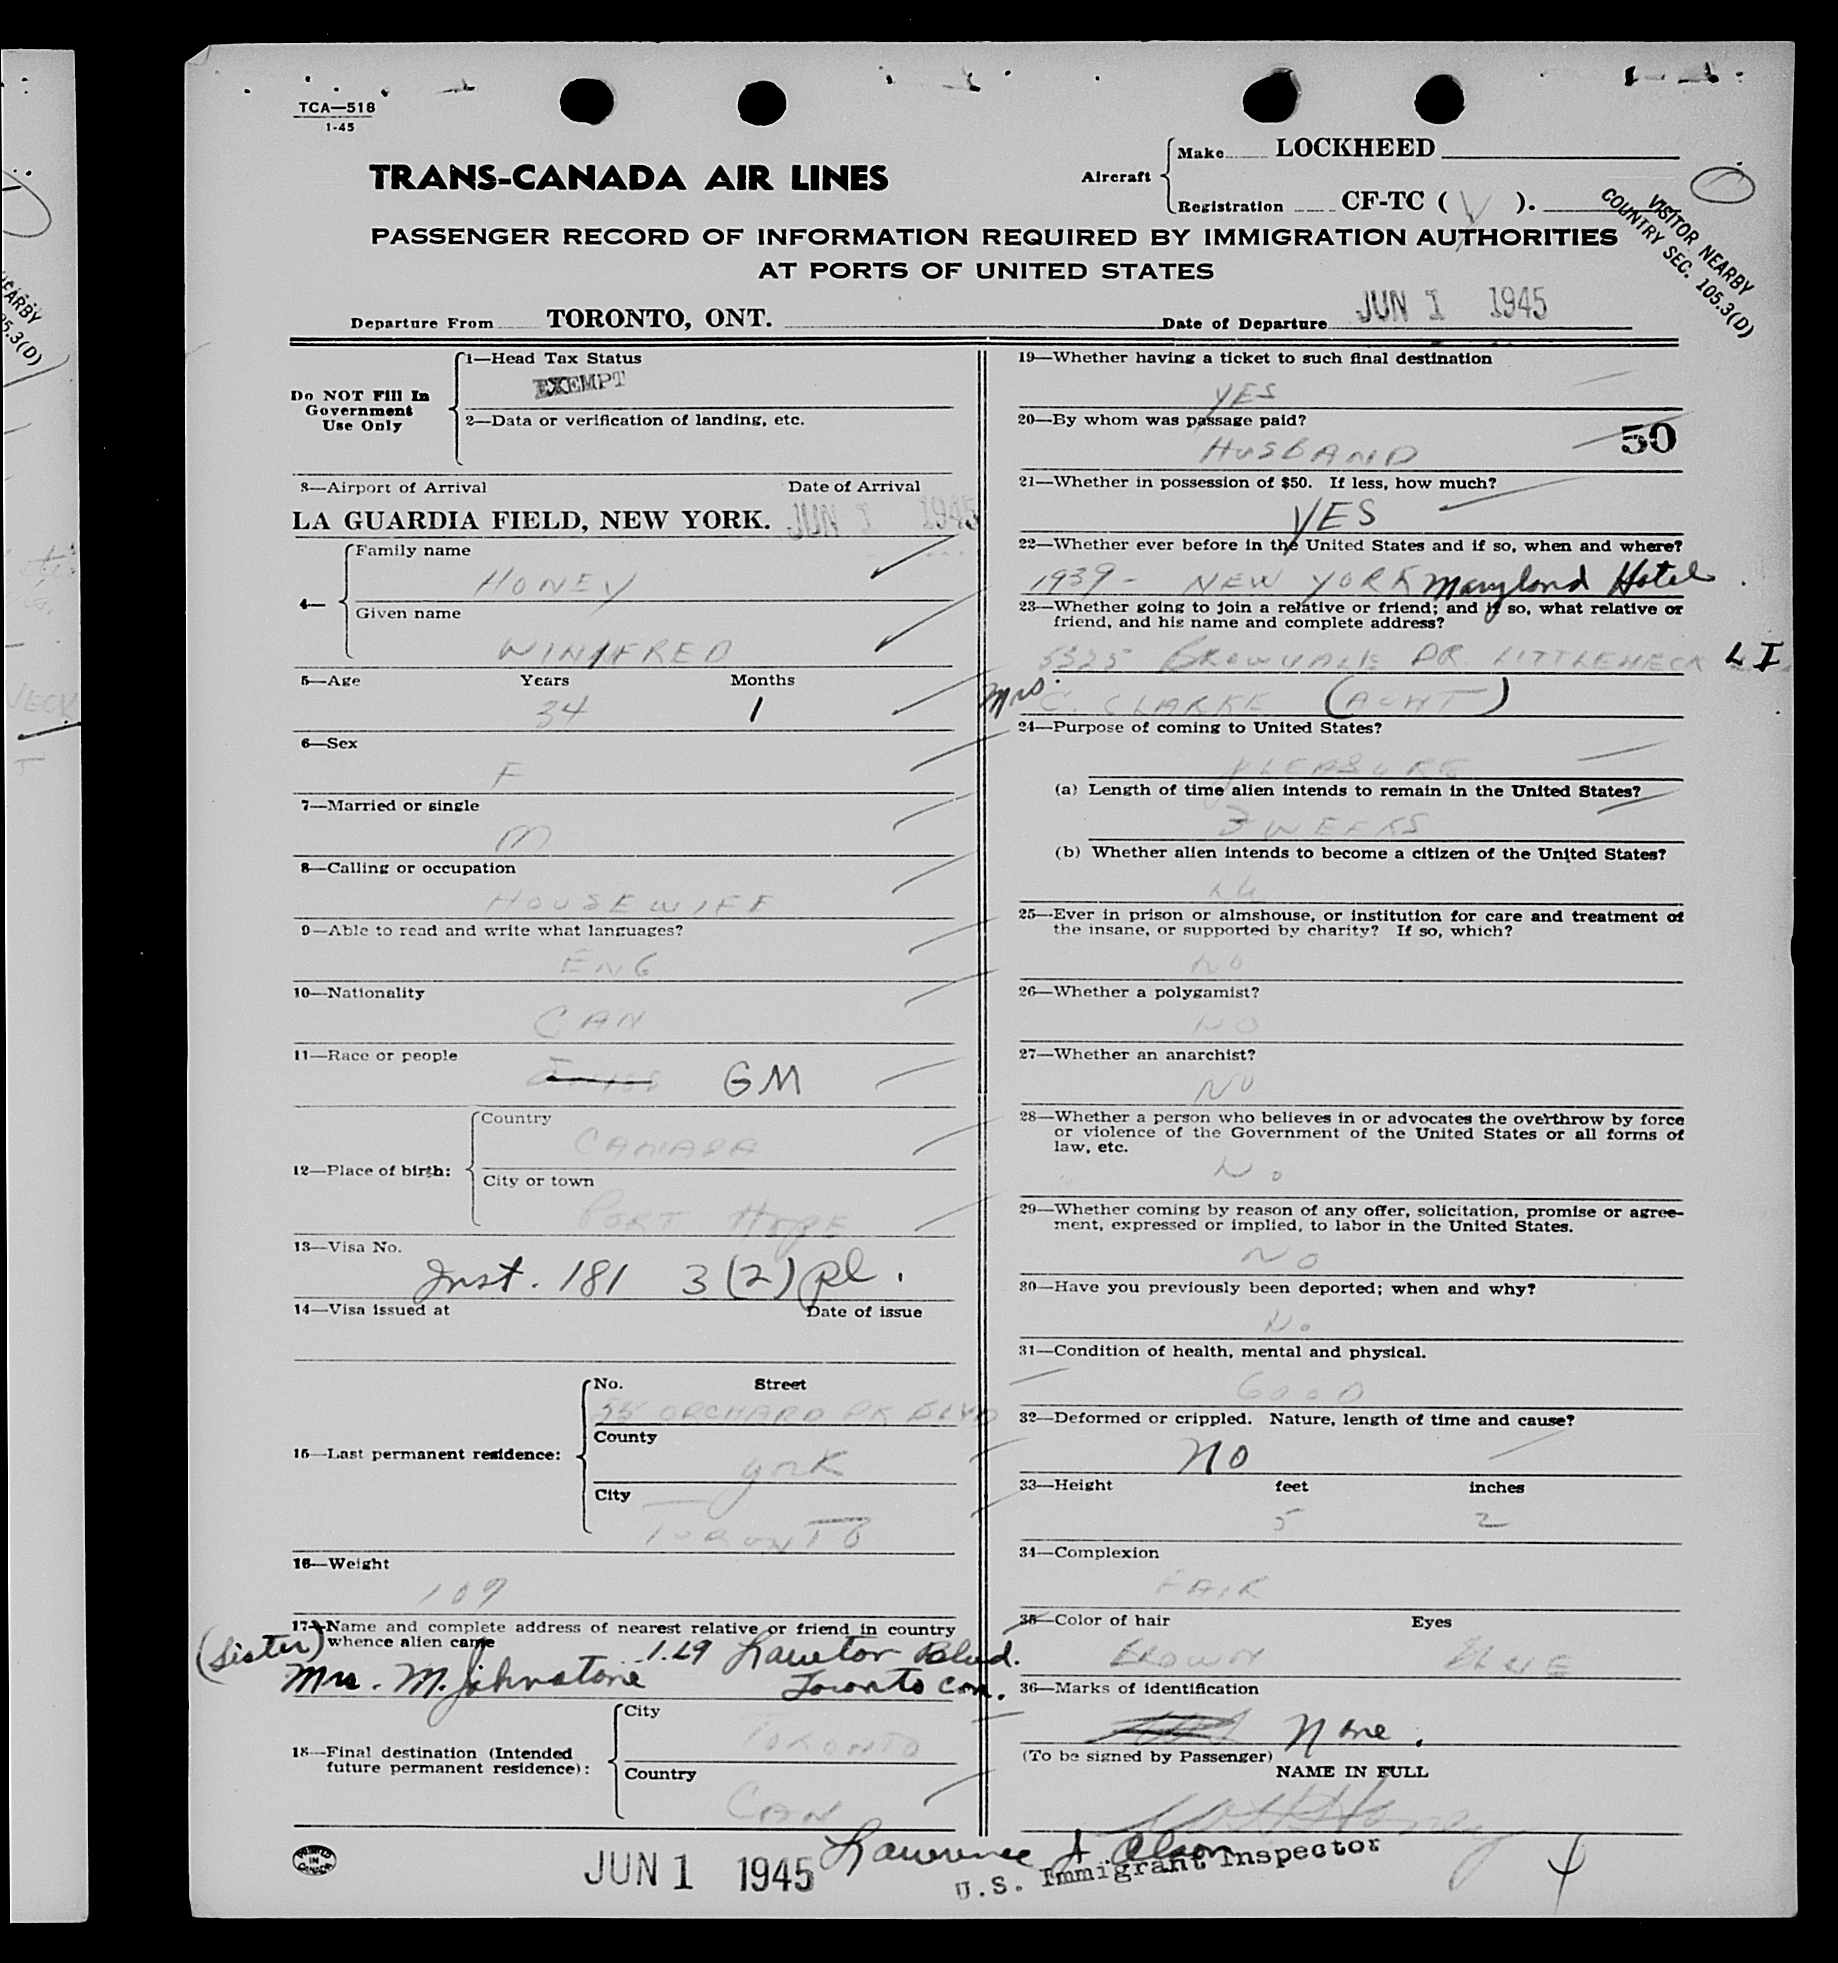 TCA—518
1-45
TRANS-CANADA AIR LINES
Aircraft
Make LOCKHEED
Registration CF-TC ( V ).
VISITOR NEARBY
COUNTRY SEC. 105.3(D)
PASSENGER RECORD OF INFORMATION REQUIRED BY IMMIGRATION AUTHORITIES
AT PORTS OF UNITED STATES
Departure From TORONTO, ONT. Date of Departure JUN 1 1945
Do NOT Fill In
Government
Use Only
1—Head Tax Status
EXEMPT
2—Data or verification of landing, etc.
3—Airport of Arrival Date of Arrival
LA GUARDIA FIELD, NEW YORK. JUN 1 1945
4—
Family name
HONEY
Given name
WINIFRED
5—Age Years Months
34 1
6—Sex
F
7—Married or single
M
8—Calling or occupation
HOUSEWIFE
9—Able to read and write what languages?
ENG
10—Nationality
CAN
11—Race or people
GM
12—Place of birth:
Country
CANADA
City or town
PORT HOPE
13—Visa No.
Inst. 181 3(2) Pl.
14—Visa issued at Date of issue
15—Last permanent residence:
No. Street
55 ORCHARD PK BLVD
County
York
City
TORONTO
16—Weight
109
17—Name and complete address of nearest relative or friend in country
whence alien came
(Sister)
129 Lawton Blvd.
Mrs. M. Johnstone Toronto Can.
18—Final destination (Intended
future permanent residence):
City
TORONTO
Country
CAN
19—Whether having a ticket to such final destination
YES
20—By whom was passage paid?
HUSBAND
50
21—Whether in possession of $50. If less, how much?
YES
22—Whether ever before in the United States and if so, when and where?
1939 - NEW YORK Maryland Hotel
23—Whether going to join a relative or friend; and if so, what relative or
friend, and his name and complete address?
DR LITTLENECK L I
Mrs. C. CLARKE (AUNT)
24—Purpose of coming to United States?
PLEASURE
(a) Length of time alien intends to remain in the United States?
3 WEEKS
(b) Whether alien intends to become a citizen of the United States?
25—Ever in prison or almshouse, or institution for care and treatment of
the insane, or supported by charity? If so, which?
NO
26—Whether a polygamist?
NO
27—Whether an anarchist?
NO
28—Whether a person who believes in or advocates the overthrow by force
or violence of the Government of the United States or all forms of
law, etc.
No
29—Whether coming by reason of any offer, solicitation, promise or agree-
ment, expressed or implied, to labor in the United States.
NO
30—Have you previously been deported; when and why?
No
31—Condition of health, mental and physical.
GOOD
32—Deformed or crippled. Nature, length of time and cause?
NO
33—Height feet inches
5 2
34—Complexion
FAIR
35—Color of hair Eyes
BROWN BLUE
36—Marks of identification
None.
(To be signed by Passenger)
NAME IN FULL
Honey
PRINTED
IN
CANADA
JUN 1 1945
Lawrence J. Olson
U.S. Immigrant Inspector